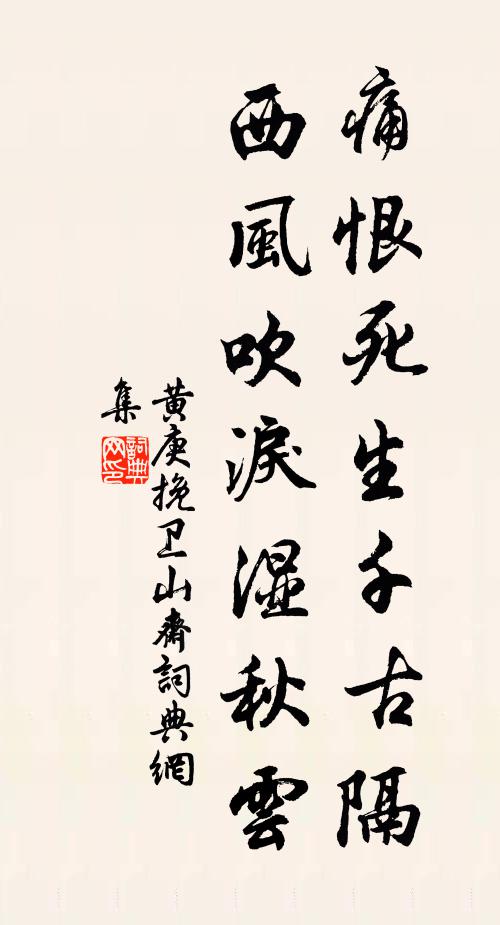 痛恨死生千古隔
西風吹淚濕秋雲
黃庚挽卫山齋詞典網
集
詞典网印